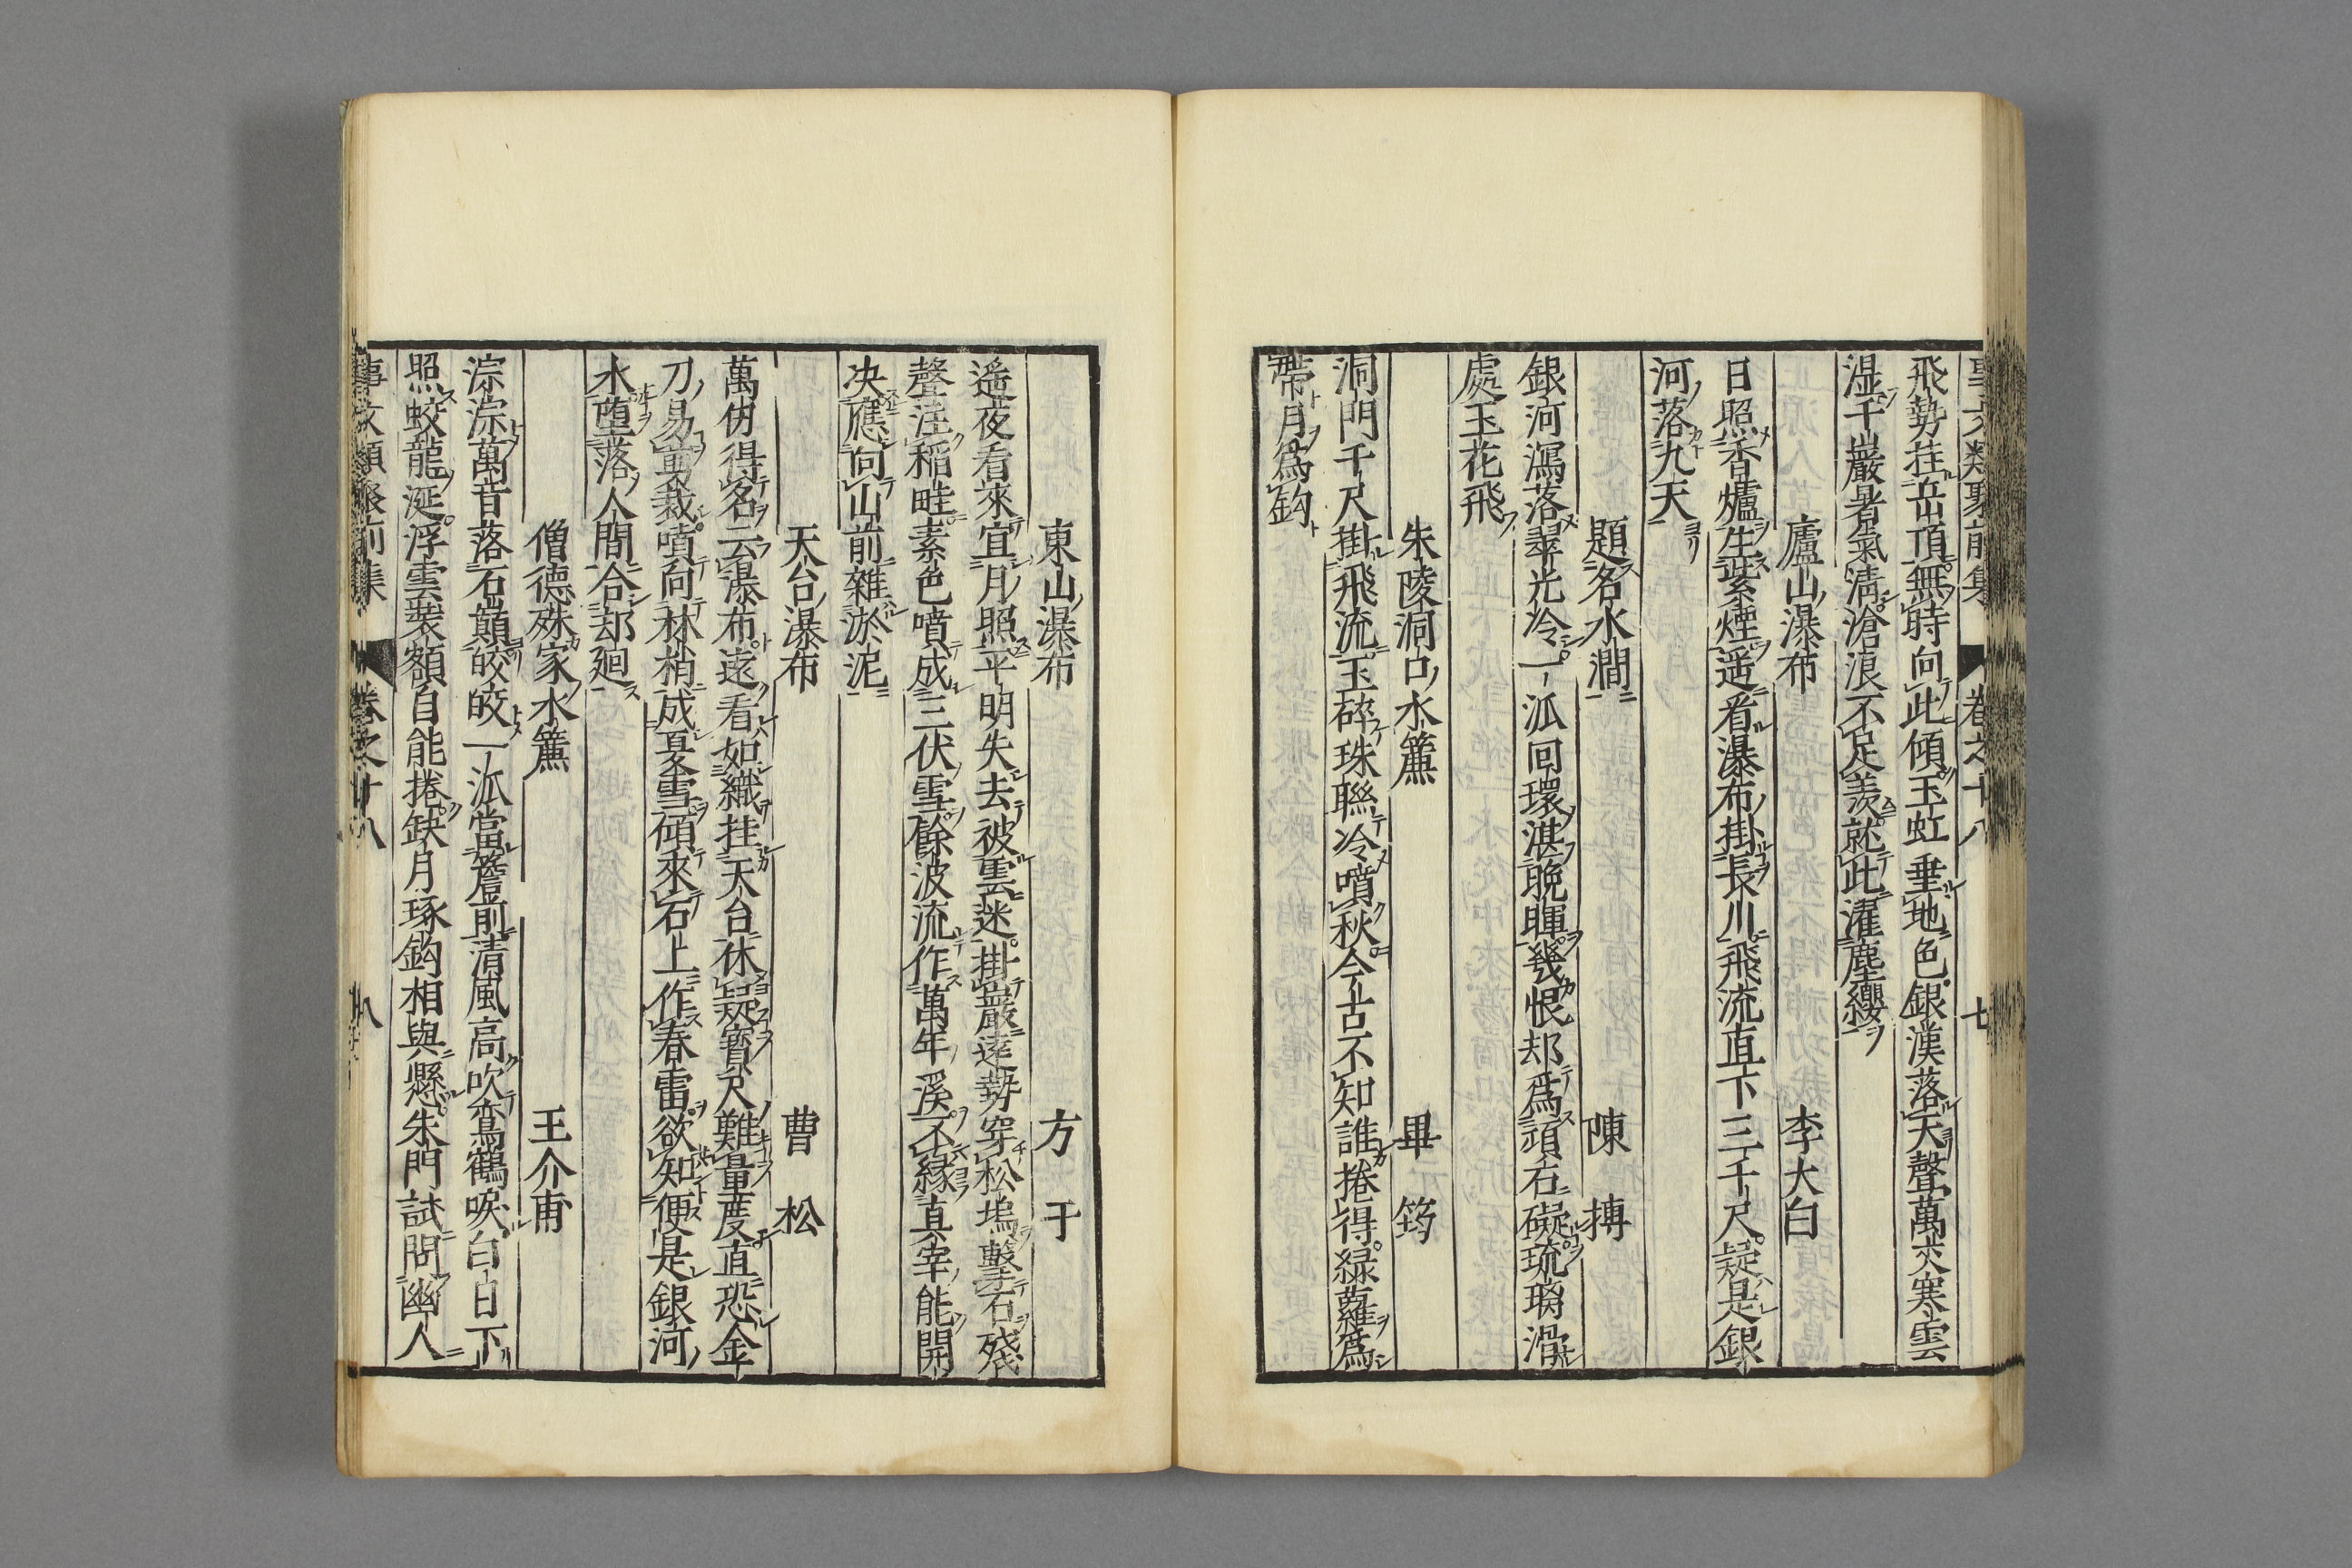 事文類聚前集 卷之十八 七
飛勢挂岳頂無時向此傾玉虹垂地色銀漢落天聲萬丈寒雲
湿千巖暑氣清滄浪不足羨就此濯塵纓
廬山瀑布 李太白
日照香爐生紫煙遥看瀑布掛長川飛流直下三千尺疑是銀
河落九天
題名水澗 陳摶
銀河瀉落翠光冷一派回環湛晩暉幾恨却爲頑石礙琉璃滑
處玉花飛
朱陵洞口水簾 畢筠
洞門千尺掛飛流玉碎珠聯冷噴秋今古不知誰捲得緑蘿爲
帶月爲鈎
東山瀑布 方干
遥夜看來宜月照平明失去被雲迷掛巖遠勢穿松塢擊石殘
聲注稲畦素色噴成三伏雪餘波流作萬年溪不縁真宰能開
决應向山前雜淤泥
天台瀑布 曹松
萬仭得名云瀑布遠看如織挂天台休疑寳尺難量度直恐金
刀易剪裁噴向林梢成夏雪傾來石上作春雷欲知便是銀河
水堕落人間合却廻
僧德殊家水簾 王介甫
淙淙萬音落石顛皎皎一派當簷前清風高吹鸞鶴唳白日下
照蛟龍涎浮雲裝額自能捲缺月琢鈎相與懸朱門試問幽人
事文類聚前集 卷之十八 八